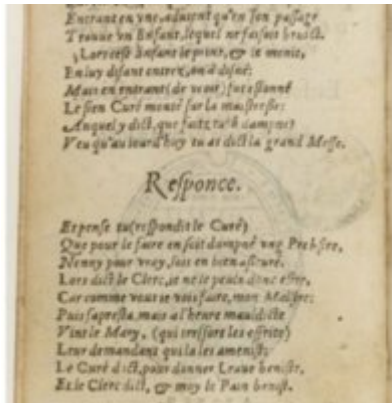 Entrant en vne, aduient qu'en son passage
Trouue vn Enfant, lequel ne faisoit bruict.
Lors cest Enfant le print, & le menit,
En luy disant entrez, on a disné:
Mais en entrant (de voir) fut estonné
Le sien Curé monté sur la maistresse:
Auquel y dict, que faitz tu? dampné?
Veu qu'au iourd'hoy tu as dict la grand Messe.
Responce.
Et pense tu (respondit le Curé)
Que pour le faire en soit dampné vng Prebstre,
Nenny pour vray, sois en bien asseuré.
Lors dict le Clerc, ie ne le peulx donc estre,
Car comme vous ie vois faire, mon Maistre:
Puis s'apresta, mais a l'heure mauldicte
Vint le Mary, (qui
Leur demandant qui la les
Le Curé dict, pour donner L'eaue beniste,
Et le Clerc dict, & moy le Pain benist.